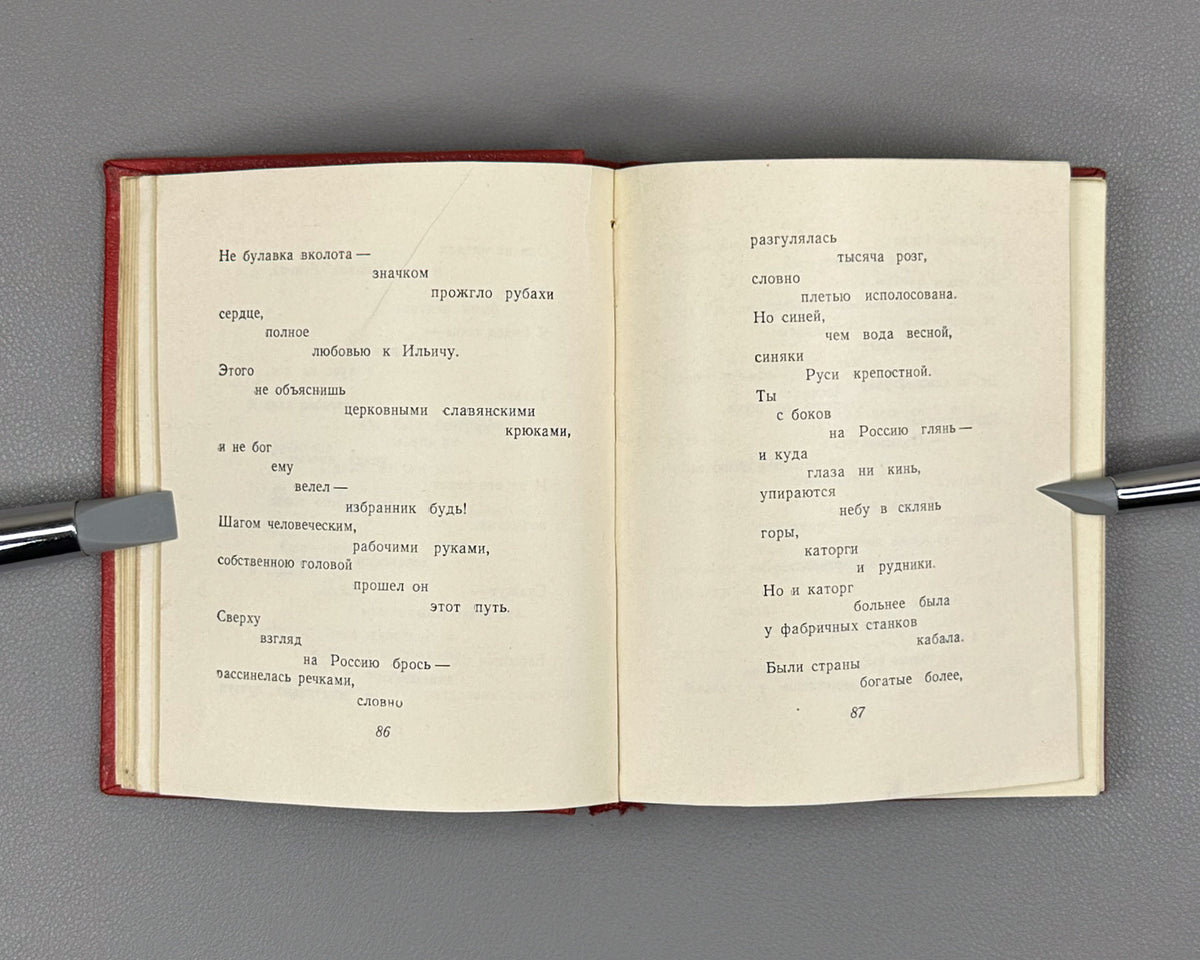 Не булавка вколота —
значком
прожгло рубахи
сердце,
полное
любовью к Ильичу.
Этого
не объяснишь
церковными славянскими
крюками,
и не бог
ему
велел —
избранник будь!
Шагом человеческим,
рабочими руками,
собственною головой
прошел он
этот путь.
Сверху
взгляд
на Россию брось —
рассинелась речками,
словно
86
разгулялась
тысяча розг,
словно
плетью исполосована.
Но синей,
чем вода весной,
синяки
Руси крепостной.
Ты
с боков
на Россию глянь —
и куда
глаза ни кинь,
упираются
небу в склянь
горы,
каторги
и рудники.
Но и каторг
больнее была
у фабричных станков
кабала.
Были страны
богатые более,
87